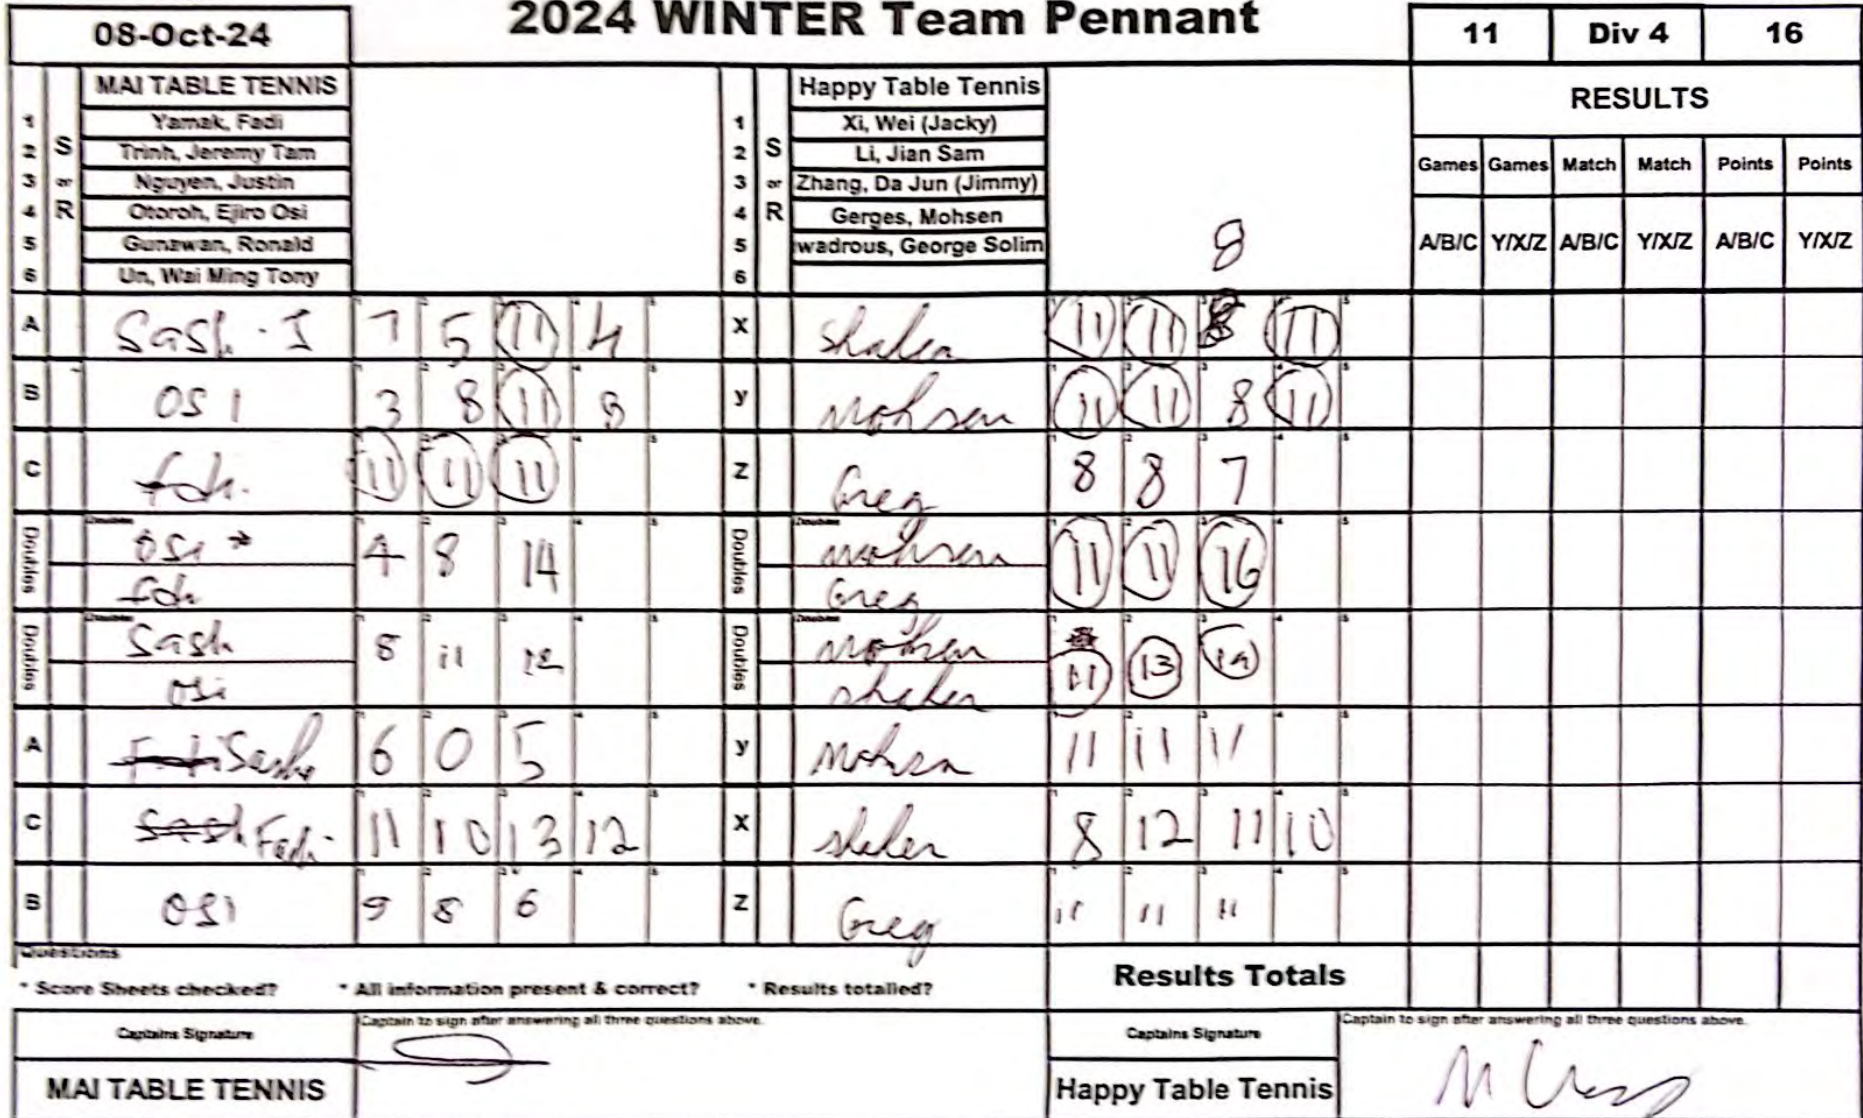 08-Oct-24
2024 WINTER Team Pennant
11 Div 4 16
MAI TABLE TENNIS
Happy Table Tennis
RESULTS
S or R
1 Yamak, Fadi
2 Trinh, Jeremy Tam
3 Nguyen, Justin
4 Otoroh, Ejiro Osi
5 Gunawan, Ronald
6 Un, Wai Ming Tony
S or R
1 Xi, Wei (Jacky)
2 Li, Jian Sam
3 Zhang, Da Jun (Jimmy)
4 Gerges, Mohsen
5 wadrous, George Solim
6
8
Games Games Match Match Points Points
A/B/C Y/X/Z A/B/C Y/X/Z A/B/C Y/X/Z
A Sash - J 7 5 11 4 X Shaker 11 11 8 11
B OSI 3 8 11 8 y Mohsen 11 11 8 11
C fadi. 11 11 11 Z Greg 8 8 7
Doubles Osi * 4 8 14 Doubles Mohsen 11 11 16
fadi Greg
Doubles Sash 8 11 12 Doubles Mohsen 11 13 14
Osi Shaker
A Sasha 6 0 5 y Mohsen 11 11 11
C Sash Fadi 11 10 13 12 X Shaker 8 12 11 10
B OSI 9 8 6 Z Greg 11 11 11
Questions
* Score Sheets checked? * All information present & correct? * Results totalled?
Results Totals
Captains Signature
Captain to sign after answering all three questions above.
Captains Signature
Captain to sign after answering all three questions above.
MAI TABLE TENNIS
Happy Table Tennis